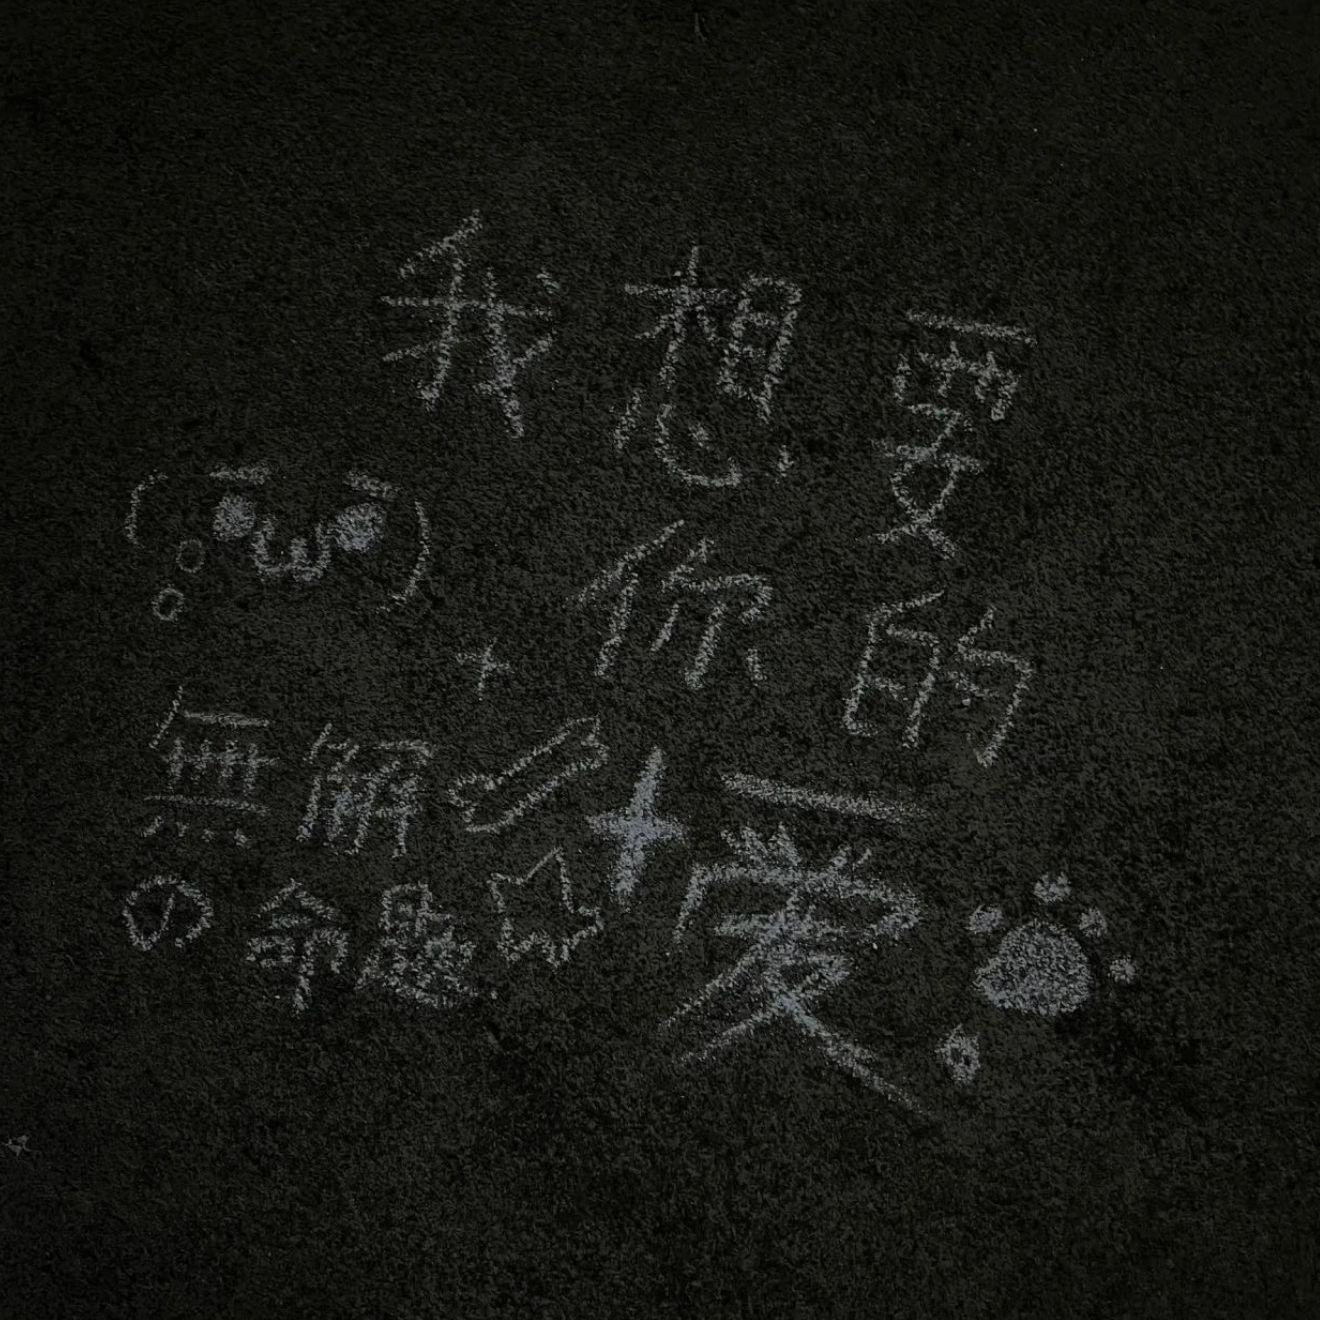 我想要
(•ω•)
你的
無解
愛。
の命題